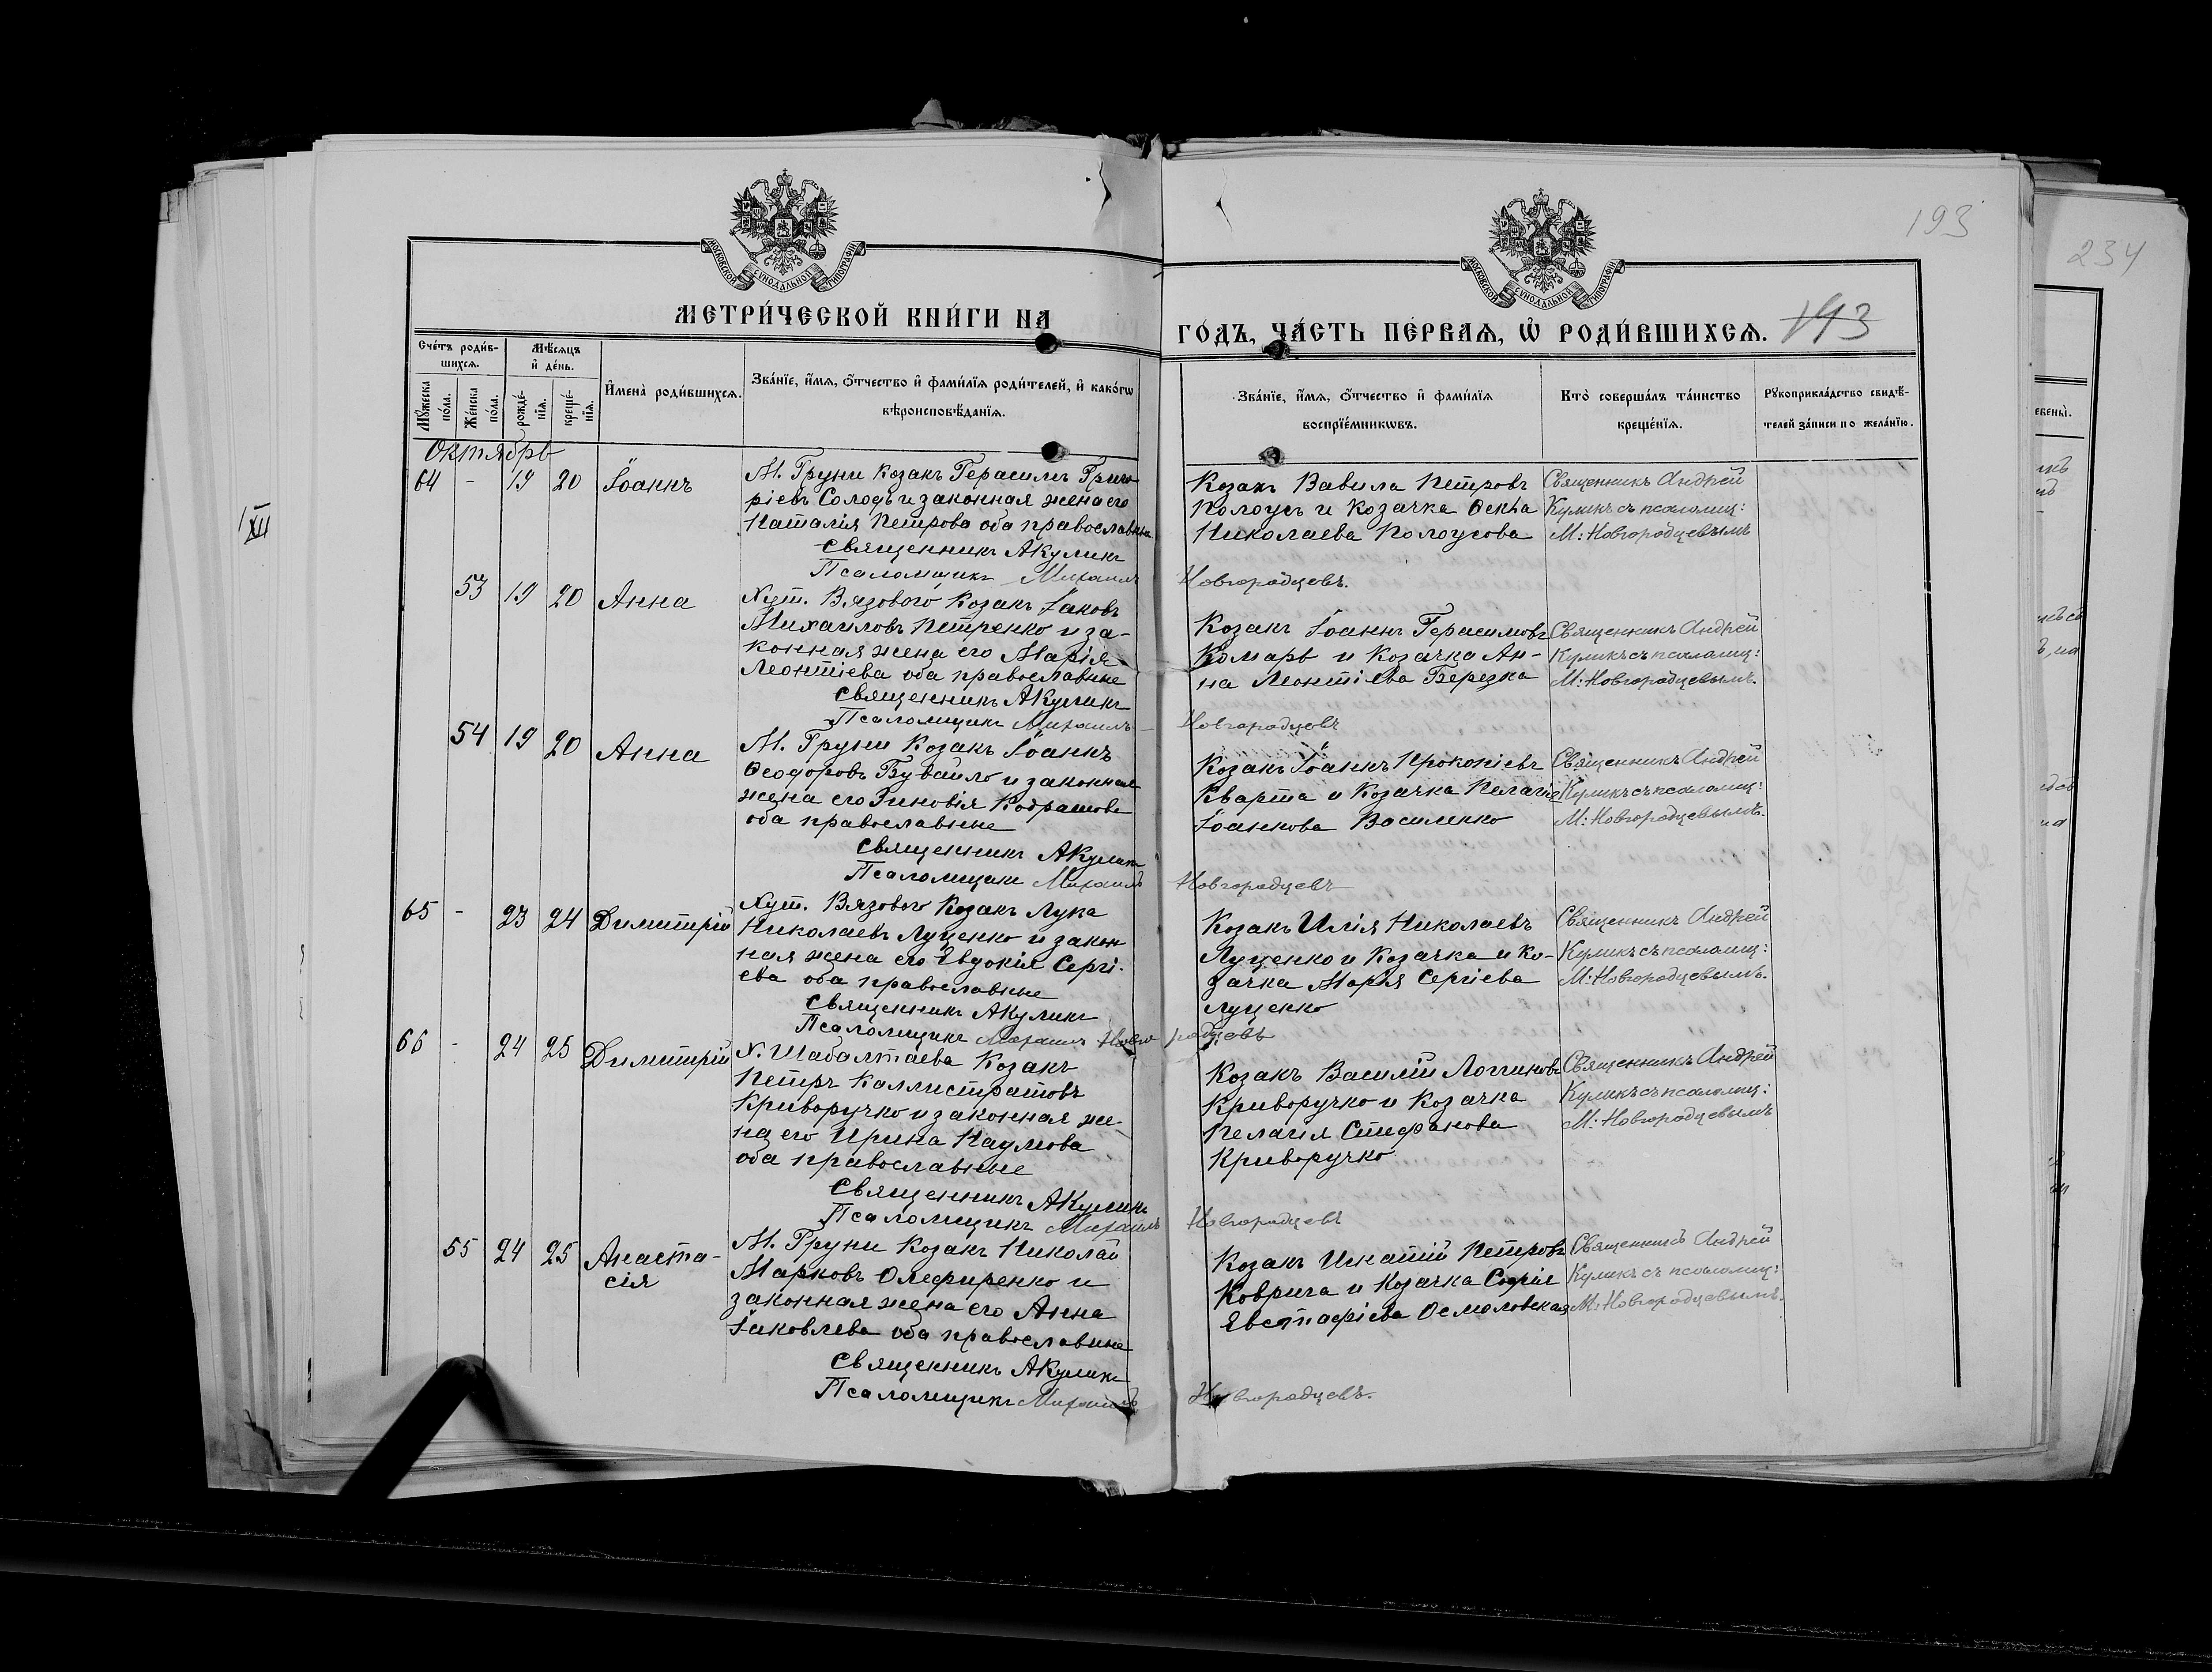 193
234
МОСКОВСКОЙ СѴНОДАЛЬНОЙ ТИПОГРАФІИ
МОСКОВСКОЙ СѴНОДАЛЬНОЙ ТИПОГРАФІИ
МЕТРИ́ЧЕСКОЙ КНИ́ГИ НА
ГО́ДЪ, ЧА́СТЬ ПЕ́РВАѦ, Ѽ РОДИ́ВШИХСѦ.
193
Сче́тъ роди́в-
шихсѧ.
Мꙋжеска по́ла.
Же́нска по́ла.
Мѣ́сѧцъ
и҆ де́нь.
рожде́-
нїѧ.
креще́-
нїѧ.
И҆мена̀ роди́вшихсѧ.
Зва́нїе, и҆́мѧ, ѻ҆́тчество и҆ фами́лїѧ роди́телей, и҆ како́гѡ
вѣроисповѣ́данїѧ.
Зва́нїе, и҆́мѧ, ѻ҆́тчество и҆ фами́лїѧ
воспрїе́мникѡвъ.
Кто̀ соверша́лъ та́инство
креще́нїѧ.
Рꙋкоприкла́дство свидѣ́-
телей за́писи по жела́нїю.
Октябрь
64 - 19 20 Іоаннъ
М. Груни Козакъ Герасимъ Григо
ріевъ Солодъ и законная жена его
Наталія Петрова оба православные
Священникъ А Куликъ
Псаломщикъ Михаилъ Новгородцевъ.
Козакъ Вавила Петровъ
Колоусъ и Козачка Ѳекла
Николаева Колоусова
Священникъ Андрей
Куликъ съ псаломщ:
М: Новгородцевымъ
53 19 20 Анна
Хут. Вязового Козакъ Іаковъ
Михаиловъ Петренко и за-
конная жена его Марія
Леонтіева оба православные
Священникъ А Куликъ
Псаломщикъ Михаилъ Новгородцевъ
Козакъ Іоаннъ Герасимовъ
Комарь и Козачка Ан-
на Леонтіева Березка
Священникъ Андрей
Куликъ съ псаломщ:
М: Новгородцевымъ.
54 19 20 Анна
М. Груни Козакъ Іоаннъ
Ѳеодоровъ Бувайло и законная
жена его Зиновія Кодратова
оба православные
Священникъ А Куликъ
Псаломщикъ Михаилъ Новгородцевъ
Козакъ Іоаннъ Прокопіевъ
Кварта и Козачка Пелагія
Іоаннова Василенко
Священникъ Андрей
Куликъ съ псаломщ:
М: Новгородцевымъ.
65 - 23 24 Димитрій
Хут. Вязового Козакъ Лука
Николаевъ Луценко и закон
ная жена его Евдокія Сергі-
ева оба православные
Священникъ А Куликъ
Псаломщикъ Михаилъ Новгородцевъ
Козакъ Илія Николаевъ
Луценко и Козачка и Ко-
зачка Марія Сергіева
Луценко
Священникъ Андрей
Куликъ съ псаломщ:
М: Новгородцевымъ.
66 - 24 25 Димитрій
Х. Шабалтаева Козакъ
Петръ Каллистратовъ
Криворучко и законная же-
на его Ирина Наумова
оба православные
Священникъ А Куликъ
Псаломщикъ Михаилъ Новгородцевъ
Козакъ Василій Логиновъ
Криворучко и Козачка
Пелагія Стефанова
Криворучко
Священникъ Андрей
Куликъ съ псаломщ:
М: Новгородцевымъ
55 24 25 Анаста-
сія
М. Груни Козакъ Николай
Марковъ Олефиренко и
законная жена его Анна
Іаковлева оба православные
Священникъ А Куликъ
Псаломщикъ Михаилъ Новгородцевъ.
Козакъ Игнатій Петровъ
Коврига и Козачка Софія
Евстафіева Осмоловская
Священникъ Андрей
Куликъ съ псаломщ:
М: Новгородцевымъ.